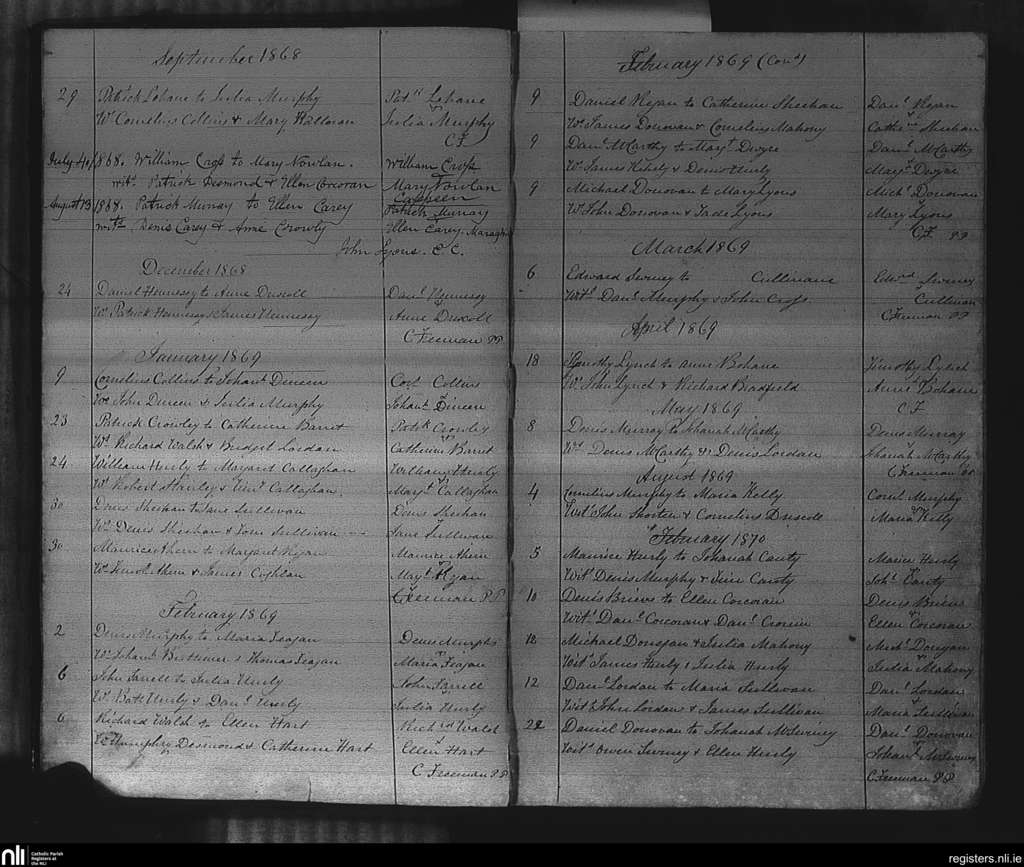 September 1868
29 Patrick Lehane to Julia Murphy Patk Lehane
Ws Cornelius Collins & Mary Halloran Julia Murphy
C F
July 4th/1868. William Cross to Mary Nowlan. William Cross
wits. Patrick Desmond & Ellen Corcoran Mary Nowlan
August 13 1868. Patrick Murray to Ellen Carey Patrick Murray
wits Denis Carey & Anne Crowly Ellen Carey
John Lyons. C. C.
December 1868
24 Daniel Hennessy to Anne Driscoll Danl Hennessy
Ws Patrick Hennessy & James Hennessy Anne Driscoll
C Freeman PP
January 1869
9 Cornelius Collins to Johanh Dineen Corl Collins
Ws John Dineen & Julia Murphy Johanh Dineen
23 Patrick Crowley to Catherine Barret Patk Crowley
Ws Richard Walsh & Bridget Lordan Catherine Barret
24 William Hurly to Margaret Callaghan William Hurly
Ws Robert Stanley & Callaghan Margt Callaghan
30 Denis Sheehan to Jane Sullivan Denis Sheehan
Ws Denis Sheehan & Sullivan Jane Sullivan
30 Maurice Ahern to Margaret Regan Maurice Ahern
Ws Ahern & James Coghlan Mayt Regan
C Freeman P.P.
February 1869
2 Denis Murphy to Maria Feagan Denis Murphy
Ws Johanh & Thomas Feagan Maria Feagan
6 John Farrell to Julia Hurly John Farrell
Ws Batt Hurly & Danl Hurly Julia Hurly
6 Richard Walsh to Ellen Hart Richrd Walsh
Ws Humphry Desmond & Catherine Hart Ellen Hart
C Freeman PP
February 1869 (Cond)
9 Daniel Regan to Catherine Sheehan Danl Regan
Ws James Donovan & Cornelius Mahony Cathne Sheehan
9 Danl McCarthy to Margt Dwyer Danl McCarthy
Ws James Hurly & Denis Hurly Margt Dwyer
9 Michael Donovan to Mary Lyons Michl Donovan
Ws John Donovan & Jade Lyons Mary Lyons
C F PP
March 1869
6 Edward Swiney to Cullinane Edwrd Swiney
Wits Danl Murphy & John Cross Cullinan
C Freeman PP
April 1869
18 Timothy Lynch to Anne Bohane Timothy Lynch
Ws John Lynch & Richard Bradfield Anne Bohane
C F
May 1869
8 Denis Murray to Johanah McCarthy Denis Murray
Ws Denis McCarthy & Denis Lordan Johanah McCarthy
C Freeman PP
August 1869
4 Cornelius Murphy to Maria Kelly Cornl Murphy
Wits John Shorten & Cornelius Driscoll Maria Kelly
February 1870
5 Maurice Hurly to Johanah Canty Maurice Hurly
Wits Denis Murphy & Canty Joh. Canty
10 Denis Briens to Ellen Corcoran Denis Briens
Wits Danl Corcoran & Danl Cronin Ellen Corcoran
12 Michael Donegan & Julia Mahony Michl Donegan
Wits James Hurly & Julia Hurly Julia Mahony
12 Danl Lordan to Maria Sullivan Danl Lordan
Wits John Lordan & James Sullivan Maria Sullivan
22 Daniel Donovan to Johanah McSwiney Danl Donovan
Wits Owen Swiney & Ellen Hurly Johanh McSwiney
C Freeman PP
nli Catholic Parish
Registers at
the NLI
registers.nli.ie